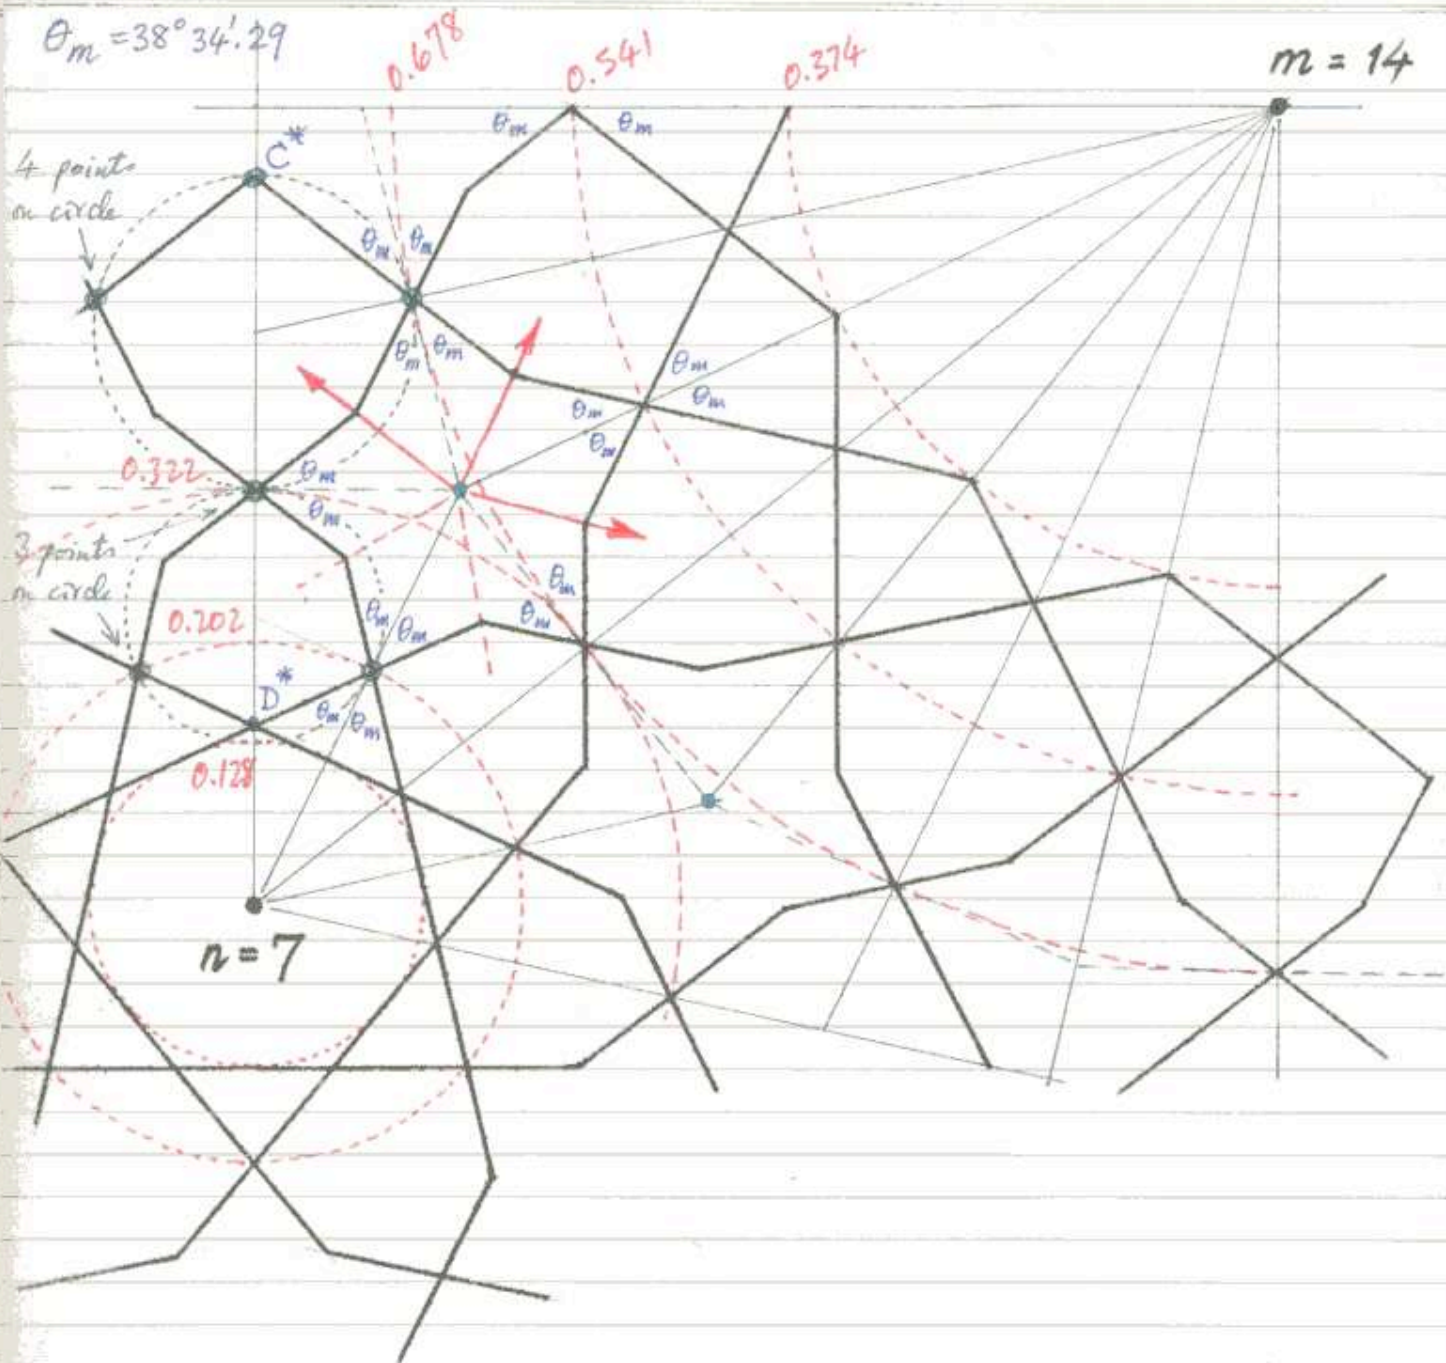 θm = 38°34'.29
0.678
0.541
0.374
m = 14
θm
θm
C*
4 points
on circle
θm
θm
θm
θm
θm
θm
θm
θm
0.322
θm
θm
3 points
on circle
θm
θm
0.202
θm
θm
D*
θm
θm
0.128
n = 7